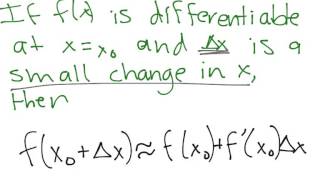 If f(x) is differentiable
at x=x₀ and Δx is a
small change in x,
then
f(x₀+Δx)≈f(x₀)+f'(x₀)Δx